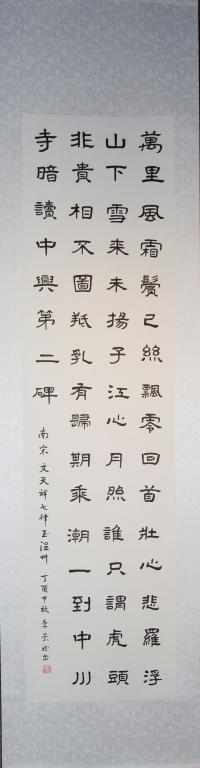 萬里風霜鬢已絲飄零回首壯心悲羅浮
山下雪來未揚子江心月照誰只謂虎頭
非貴相不圖羝乳有歸期乘潮一到中川
寺暗讀中興第二碑
南宋文天祥七律至溫州 丁酉中秋李